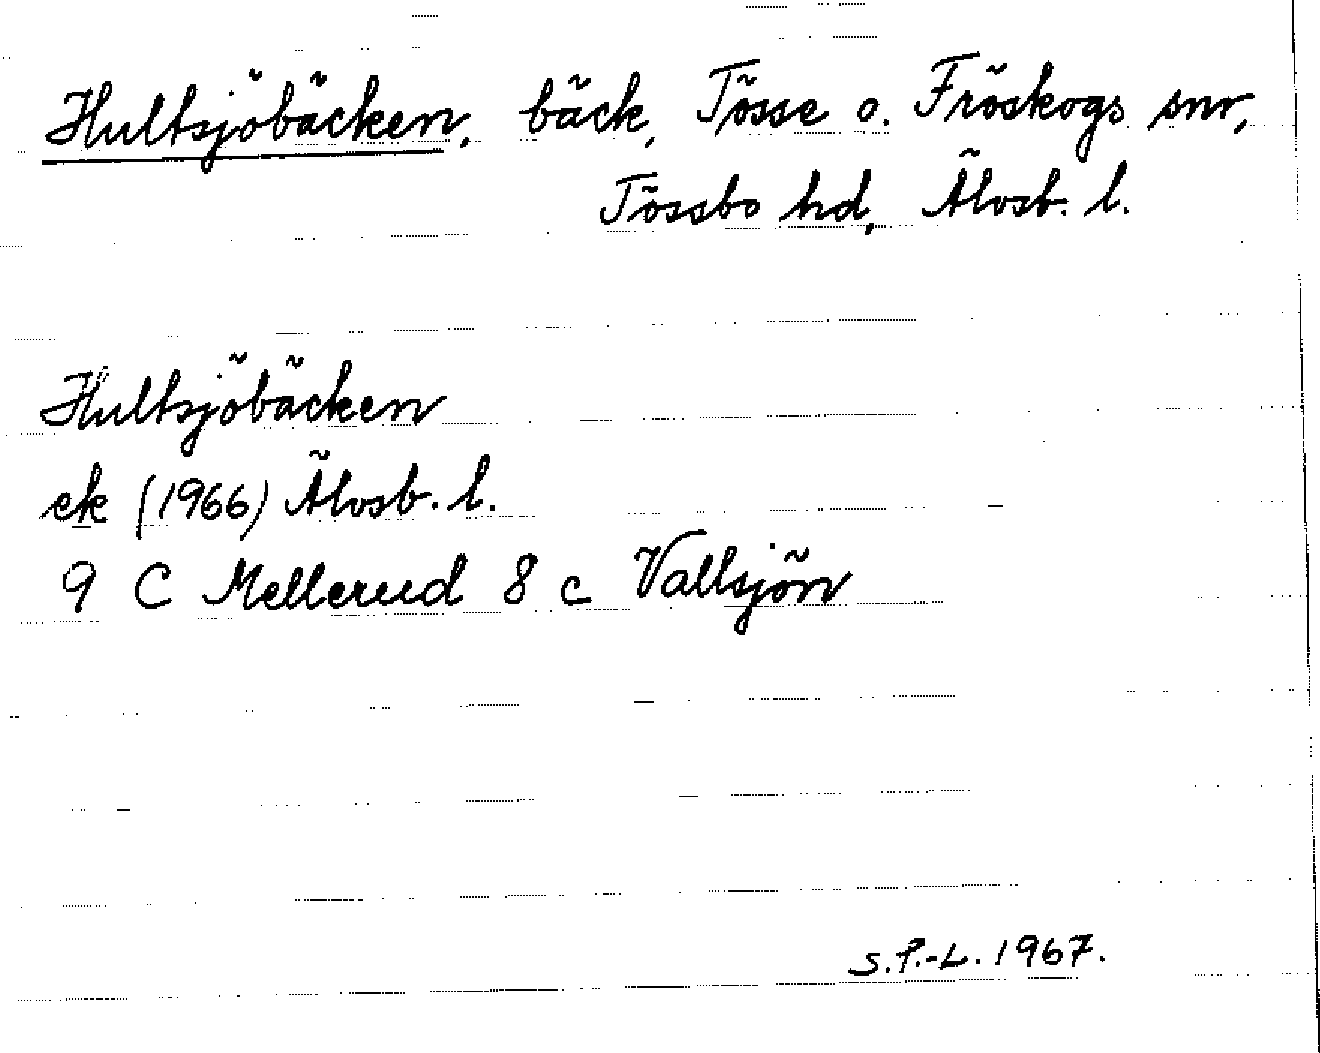 Hultsjöbäcken, bäck, Tösse o. Fröskogs snr,
Tössbo hd, Älvsb. l.
Hultsjöbäcken
ek (1966) Älvsb. l.
9 C Mellerud 8 c Vallsjön
S.P.-L. 1967.